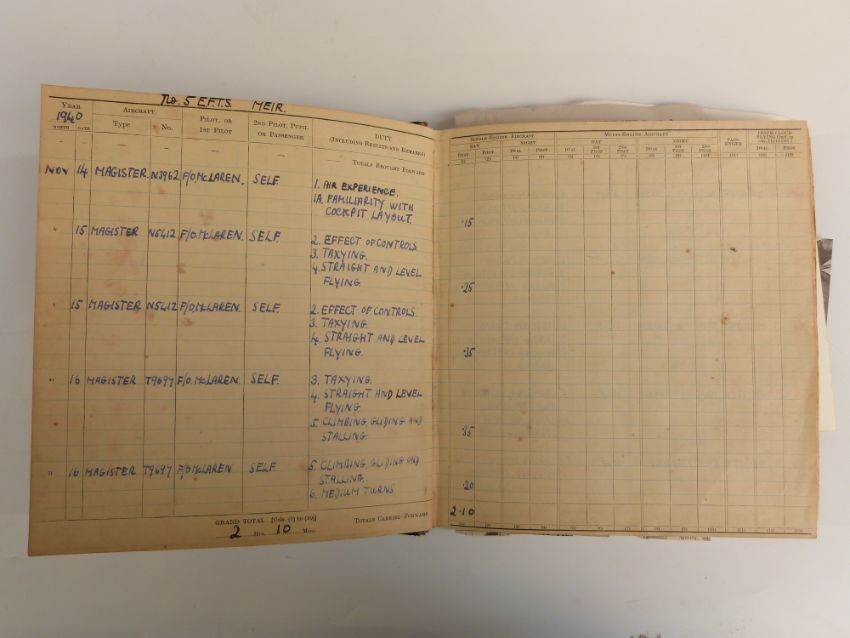 No. 5 E.F.T.S. MEIR.
YEAR
1940
MONTH DATE
AIRCRAFT
Type No.
PILOT, OR
1ST PILOT
2ND PILOT, PUPIL
OR PASSENGER
DUTY
(INCLUDING RESULTS AND REMARKS)
TOTALS BROUGHT FORWARD
NOV 14 MAGISTER. N3962 F/O McLAREN. SELF. 1. AIR EXPERIENCE.
1A. FAMILIARITY WITH
COCKPIT LAYOUT.
" 15 MAGISTER N5412 F/O. McLAREN. SELF. 2. EFFECT OF CONTROLS
3. TAXYING.
4. STRAIGHT AND LEVEL
FLYING.
" 15 MAGISTER N5412 F/O. McLAREN. SELF. 2. EFFECT OF CONTROLS.
3. TAXYING.
4. STRAIGHT AND LEVEL
FLYING.
" 16 MAGISTER T9697 F/O. McLAREN. SELF. 3. TAXYING.
4. STRAIGHT AND LEVEL
FLYING.
5. CLIMBING, GLIDING AND
STALLING.
" 16 MAGISTER T9697 F/O McLAREN SELF. 5. CLIMBING, GLIDING AND
STALLING.
6. MEDIUM TURNS
GRAND TOTAL [Cols. (1) to (10)]
2 Hrs. 10 Mins.
TOTALS CARRIED FORWARD
SINGLE-ENGINE AIRCRAFT MULTI-ENGINE AIRCRAFT
DAY NIGHT DAY NIGHT
PASS-
ENGER
DUAL PILOT DUAL PILOT DUAL 1ST PILOT 2ND PILOT DUAL 1ST PILOT 2ND PILOT DUAL PILOT
(1) (2) (3) (4) (5) (6) (7) (8) (9) (10) (11) (12) (13)
.15
.25
.35
.35
.20
2.10